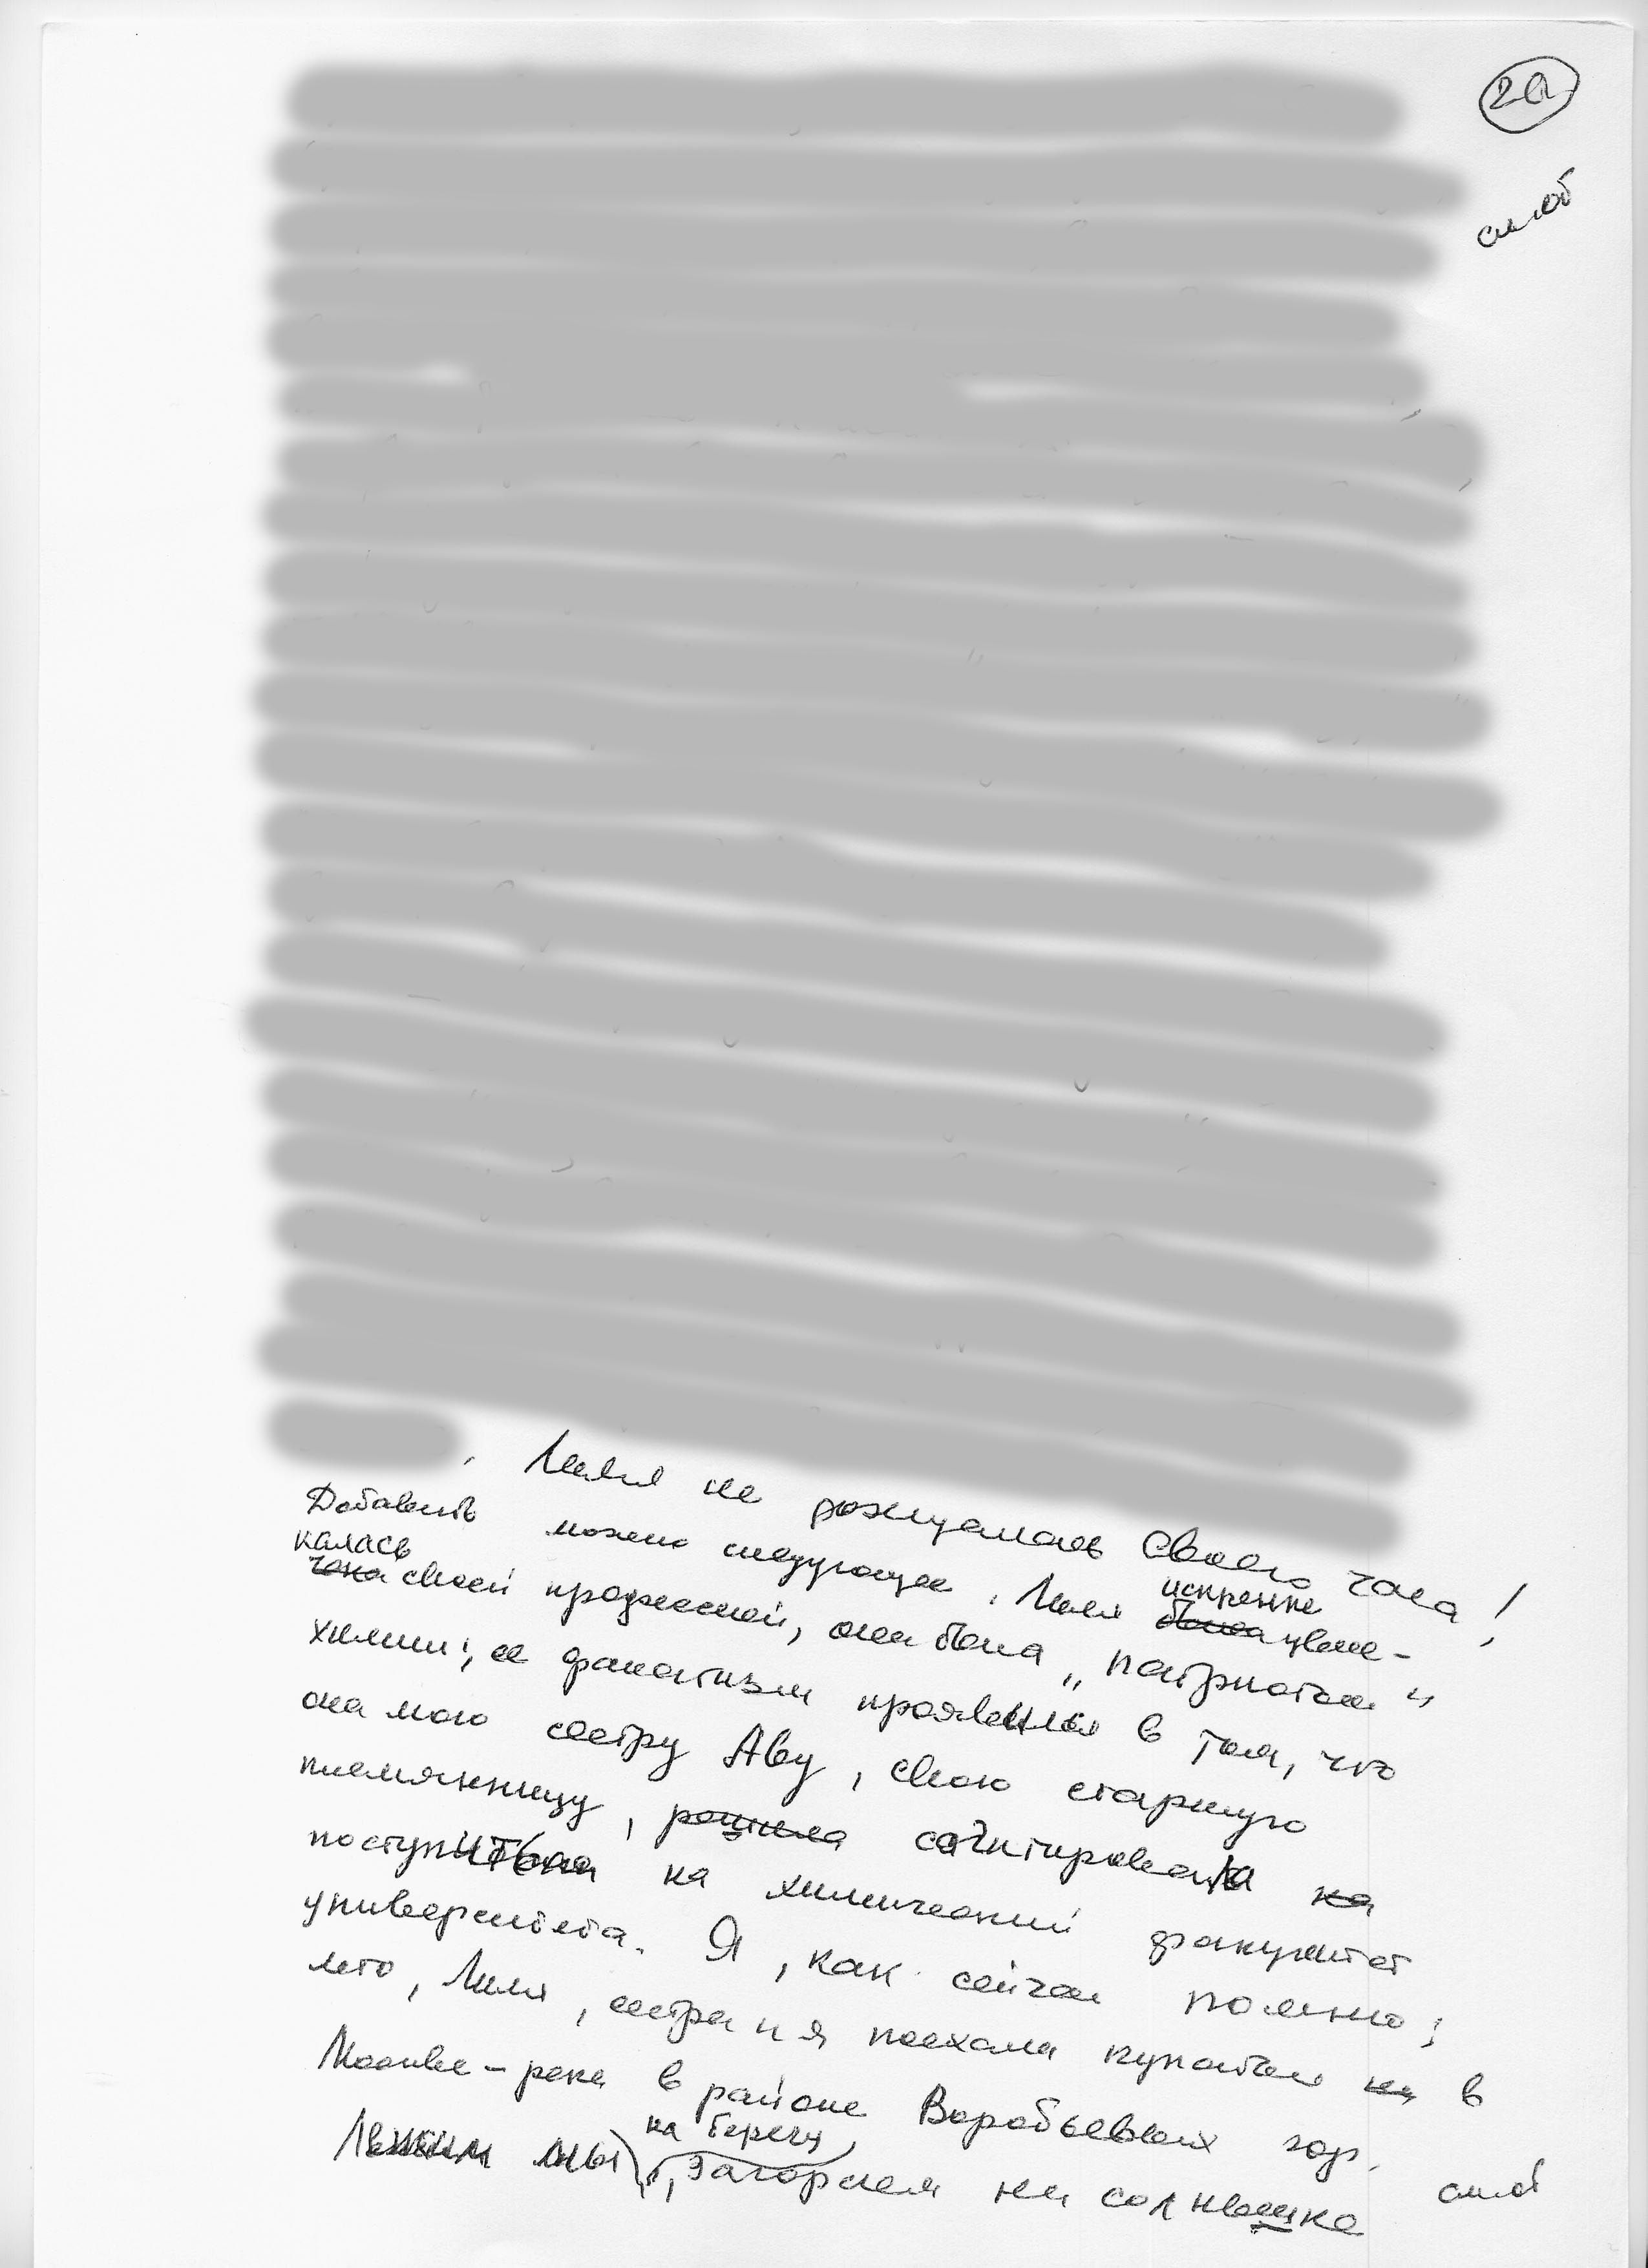 2а
см. об
Лиля не дождалась своего часа!
Добавить можно следующее. Лиля искренне была увле-
калась
чена своей профессией, она была „патриотом"
химии; ее фанатизм проявился в том, что
она мою сестру Аву, свою старшую
племянницу, решила сагитировала на
поступить на химический факультет
университета. Я, как сейчас помню:
лето, Лиля, сестра и я поехали купаться на в
Москве-реке в районе Воробьевых гор.
на берегу,
Лежим мы, загораем на солнышке
см. об